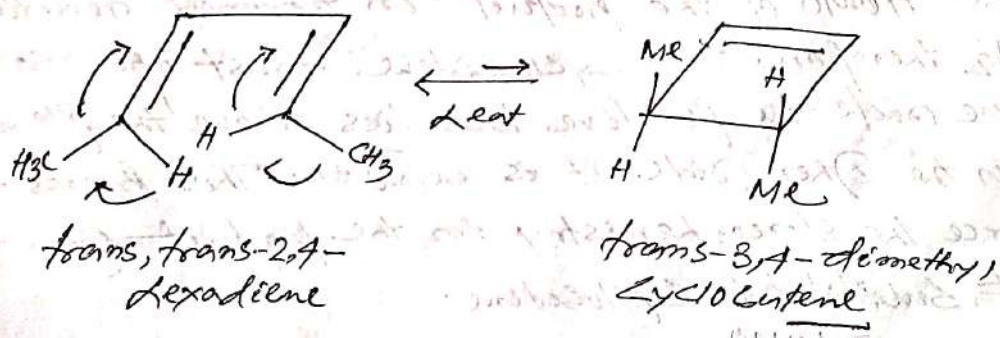 Me
H
H
H3C
H
CH3
Heat
H
Me
trans, trans-2,4-
hexadiene
trans-3,4-dimethyl,
Cyclobutene